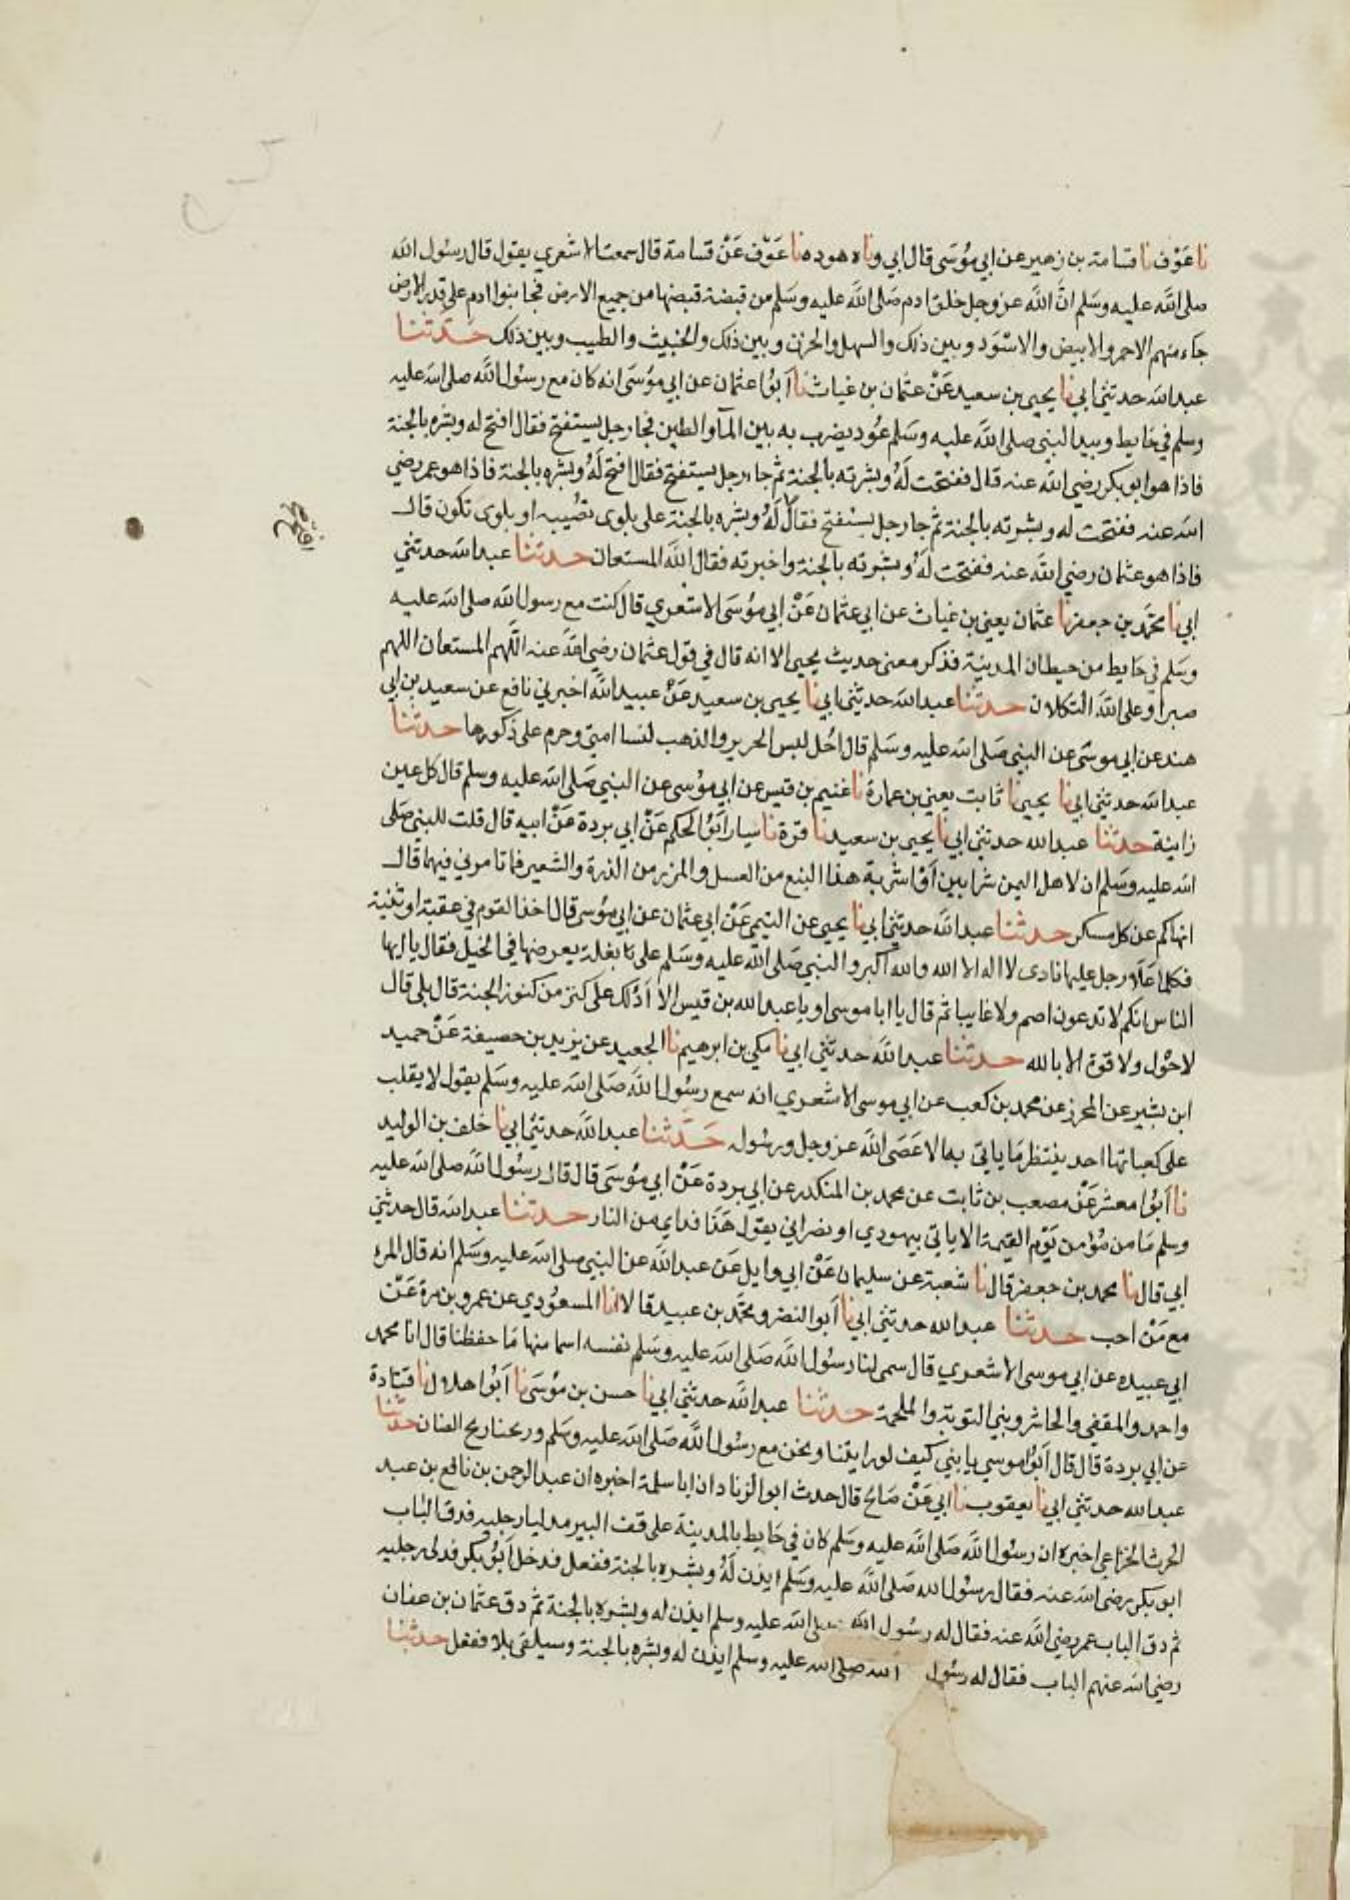 نا عَوْف نا قسامة بن زهير عن ابي مُوسَى قال ابي وناه هوده نا عَوْف عَنْ قسامة قال سمعت الاشعري يقول قال رسُول الله
صلى الله عليه وسَلم انَّ الله عز وجل خلق ادم صَلى الله عليه وسَلم من قبضة قبضها من جميع الارض فجا بنوا ادم على قدر الارض
جاء منهم الاحمر والابيض والاسْوَد وبين ذلك والسهل والحزن وبين ذلك والخبيث والطيب وبين ذلك حَدَّثنا
عبد الله حدثني ابي نا يحيى بن سعيد عَنْ عثمان بن غياث نا اَبوُا عثمان عن ابي موُسَى انه كان مع رسوُل الله صلى الله عليه
وسلم في حايط وبيد النبي صلى الله عليه وسَلم عُود يضرب به بين المآ والطين فجا رجل يستفتح فقال افتح له وبشره بالجنة
فاذا هو ابو بكر رضي الله عنه قال ففتحت لَهُ وبشرته بالجنة ثم جاء رجل يستفتح فقال افتح لَهُ وبشره بالجنة فاذا هو عمر رضي
الله عنه ففتحت له وبشرته بالجنة ثم جا رجل يستفتح فقال لَهُ وبشره بالجنة على بلوى تصُيبه او بلوى تكون قال
افتح
فاذا هو عثمان رضي الله عنه ففتحت لَهُ وبشرته بالجنة واخبرته فقال الله المستعان حدثنا عبد الله حدثني
ابي نا محمَّد بن جعفر نا عثمان يعني بن غياث عن ابي عثمان عَنْ ابي موُسَى الاشعري قال كنت مع رسول الله صلى الله عليه
وسَلم في حَايط من حيطان المدينة فذكر معنى حديث يحيى الا انه قال في قول عثمان رضي الله عنه اللهم المستعان اللهم
صبراً وعلى الله التكلان حدثنا عبد الله حدثني ابي نا يحيى بن سعيد عَنْ عبيد الله اخبرني نافع عن سعيد بن ابي
هند عن ابي موسَى عن النبي صَلى الله عليه وسَلم قال احُل لبس الحرير والذهب لنسا امتي وحرم على ذكورها حدثنا
عبد الله حدثني ابي نا يحيى نا ثابت يعني بن عمارة نا غنيم بن قيس عن ابي موُسى عن النبي صَلى الله عليه وسلم قال كل عين
زانية حدثنا عبد الله حدثني ابي نا يحيى بن سعيد نا قرة نا سيار ابَوُ الحكم عَنْ ابي بردة عَنْ ابيه قال قلت للنبي صَلى
الله عليه وسَلم ان لاهل اليمن شرابين اَوْ اشربة هذا البتع من العسل والمزر من الذرة والشعير فما تامرني فيهما قال
انهاكم عن كل مسكر حدثنا عبد الله حدثني ابي نا يحيى عن التيمي عَنْ ابي عثمان عن ابي موُسى قال اخذ القوم في عقبة او ثنية
فكلما عَلَا رجل عليها نادى لا اله الا الله والله اكبر والنبي صَلى الله عليه وسَلم على بغلة يعرضها في الخيل فقال يا ايها
الناس انكم لا تدعون اصم ولا غايبا ثم قال يا ابا موسى او يا عبد الله بن قيس الا اَدُلك على كنز من كنوز الجنة قال بلى قال
لا حَوْل ولا قوة الا بالله حدثنا عبد الله حدثني ابي نا مكي بن ابرهيم نا الجعيد عن يزيد بن حصيفة عَنْ حميد
ابن بشير عن المحرز عن محمد بن كعب عن ابي موسى الاشعري انه سمع رسُول الله صَلى الله عليه وسَلم يقول لا يقلب
على كعباتها احد ينتظر مَا ياتي به الا عَصَى الله عز وجل ورسُوله حَدَّثنا عبد الله حدثني ابي نا خلف بن الوليد
نا اَبوُا معشر عَنْ مصعب بن ثابت عن محمد بن المنكدر عن ابي بردة عَنْ ابي موُسَى قال قال رسُول الله صلى الله عليه
وسلم مَا من مُؤمن يَوْم القيمة الا ياتي بيهودي او نصراني يقول هَذا فداي من النار حدثنا عبد الله قال حدثني
ابي قال نا محمد بن جعفر قال نا شعبة عن سليمان عَنْ ابي وايل عَن عبد الله عن النبي صلى الله عليه وسَلم انه قال المرء
مع مَنْ احب حدثنا عبد الله حدثني ابي نا اَبوا النضر ومحمَّد بن عبيد قالا انا المسعوُدي عن عمرو بن مرة عَنْ
ابي عبيده عن ابي موسى الاشعري قال سمى لنا رسوُل الله صَلى الله عليه وسَلم نفسه اسما منها مَا حفظنا قال انا محمد
واحمد والمقفي والحاشر ونبي التوبة والملحمة حدثنا عبد الله حدثني ابي نا حسن بن موُسَى نا اَبوُا هلال نا قتادة
عن ابي بردة قال قال اَبوُا موسى يا بني كيف لو رايتنا ونحن مع رسُول الله صَلى الله عليه وسَلم وريحنا ريح الضان حدثنا
عبد الله حدثني ابي نا يعقوب نا ابي عَنْ صَالح قال حدث ابو الزناد ان ابا سلمة اخبره ان عبد الرحمن بن نافع بن عبد
الحرث الخزاعي اخبره ان رسوُل الله صَلى الله عليه وسَلم كان في حَايط بالمدينة على قف البير مدليا رجليه فدق الباب
ابو بكر رضى الله عنه فقال رسُول الله صَلى الله عليه وسَلم ايذن لَهُ وبشره بالجنة ففعل فدخل اَبوُ بكر فدلى رجليه
ثم دق الباب عمر رضي الله عنه فقال له رسول الله صلى الله عليه وسلم ايذن له وبشره بالجنة ثم دق عثمان بن عفان
رضي الله عنهم الباب فقال له رسوُل الله صلى الله عليه وسلم ايذن له وبشره بالجنة وسيلقى بلا ففعل حدثنا